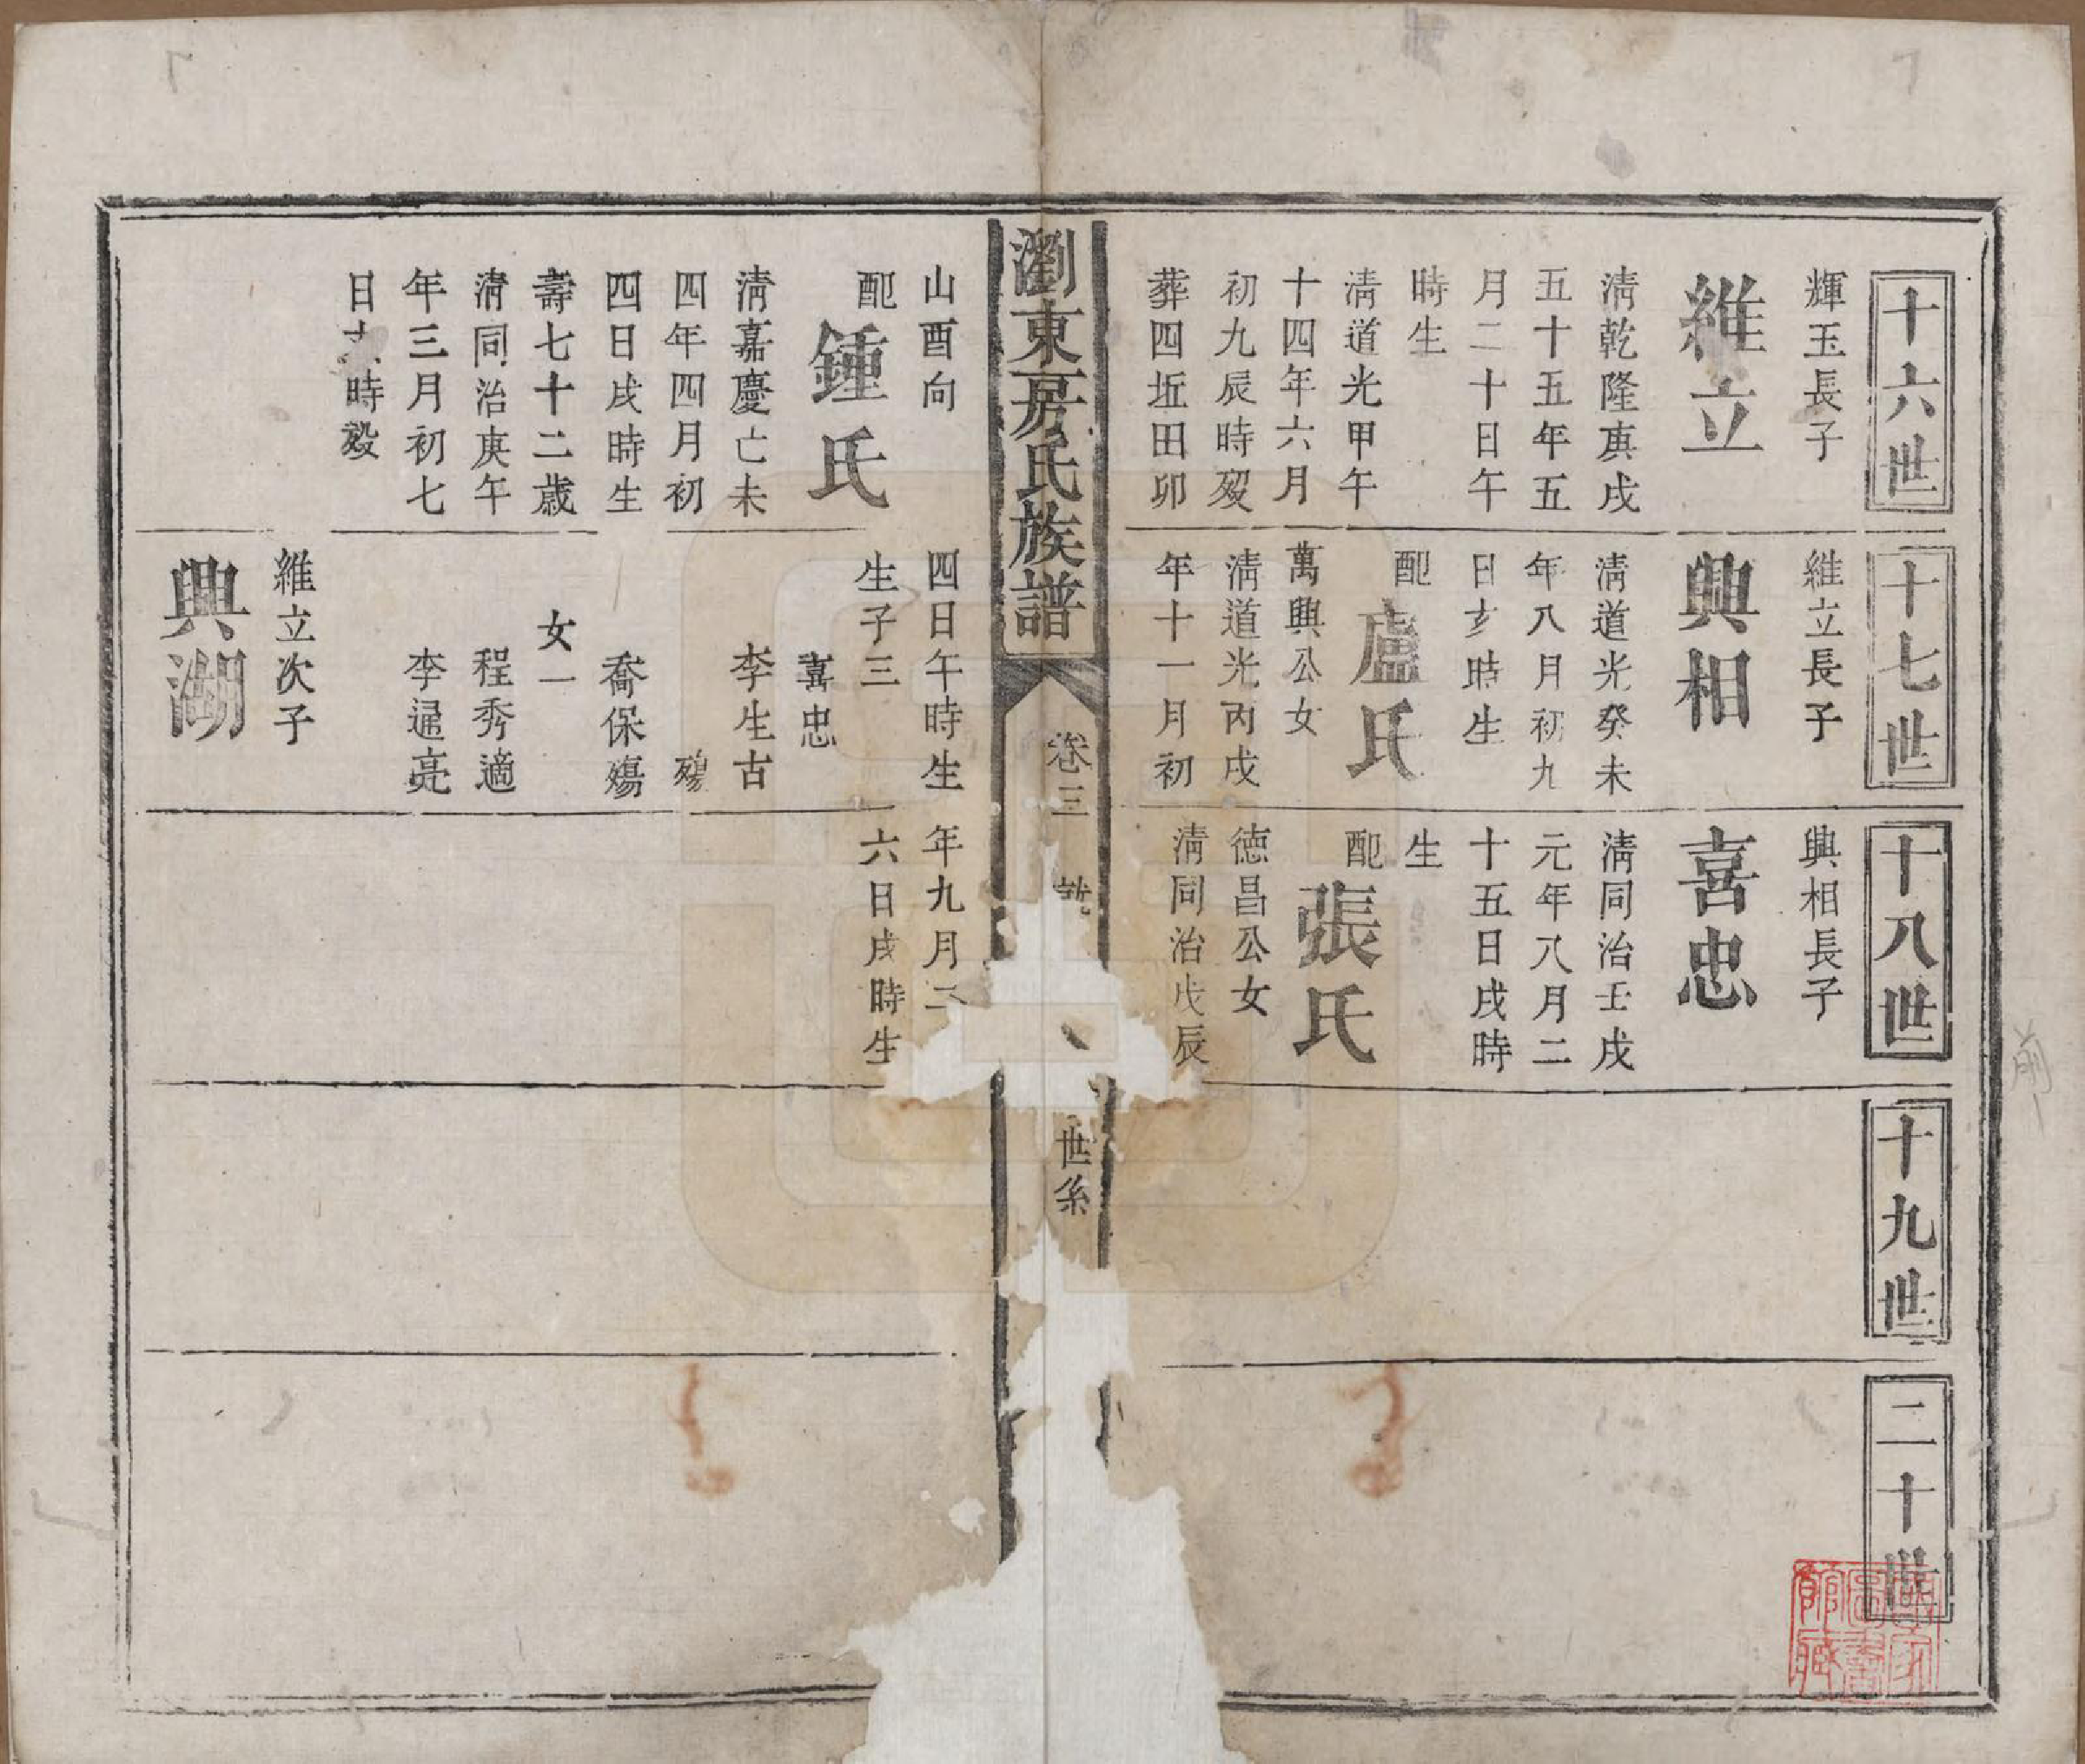 十六世
輝玉長子
維立
淸乾隆庚戌
五十五年五
月二十日午
時生
淸道光甲午
十四年六月
初九辰時歿
葬四坵田卯
十七世
維立長子
興相
淸道光癸未
年八月初九
日亥時生
配
盧氏
萬興公女
淸道光丙戌
年十一月初
十八世
興相長子
喜忠
淸同治壬戌
元年八月二
十五日戌時
生
配
張氏
德昌公女
淸同治戊辰
十九世
二十世
瀏東房氏族譜
卷三
世系
山酉向
配
鍾氏
淸嘉慶亡未
四年四月初
四日戌時生
壽七十二歲
淸同治庚午
年三月初七
日 時殁
四日午時生
生子三
喜忠
李生古
殤
喬保殤
女一
程秀適
李逞亮
維立次子
興湖
年九月二
六日戌時生
國家圖書館藏